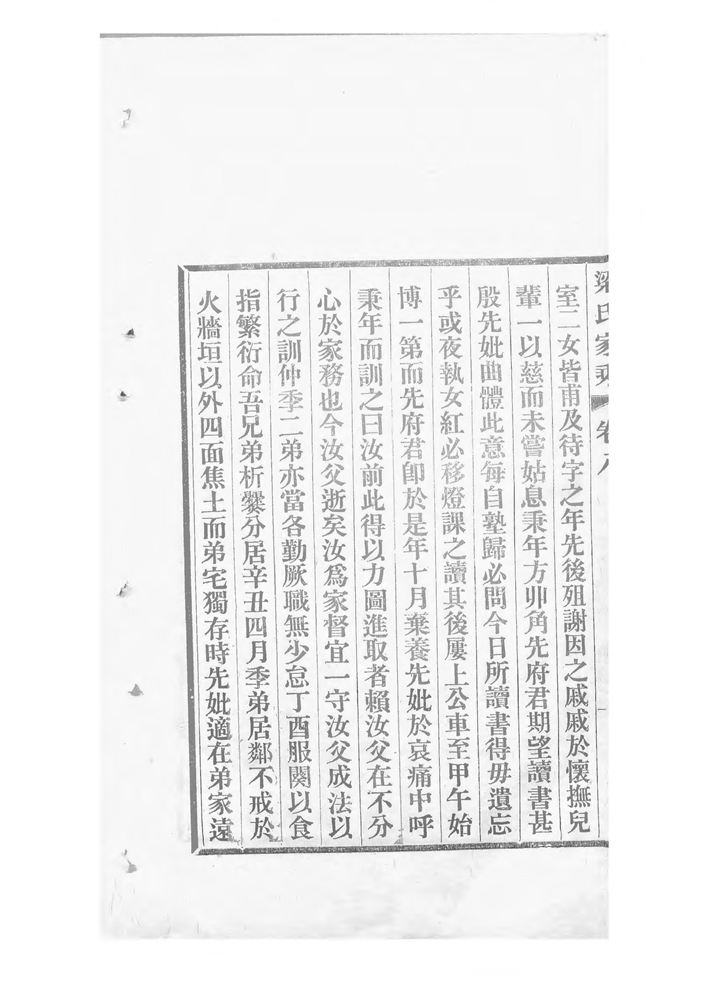 梁氏家乘 卷八
室二女皆甫及待字之年先後殂謝因之戚戚於懷撫兒
輩一以慈而未嘗姑息秉年方丱角先府君期望讀書甚
殷先妣曲體此意每自塾歸必問今日所讀書得毋遺忘
乎或夜執女紅必移燈課之讀其後屢上公車至甲午始
博一第而先府君卽於是年十月棄養先妣於哀痛中呼
秉年而訓之曰汝前此得以力圖進取者賴汝父在不分
心於家務也今汝父逝矣汝爲家督宜一守汝父成法以
行之訓仲季二弟亦當各勤厥職無少怠丁酉服闋以食
指繁衍命吾兄弟析爨分居辛丑四月季弟居鄰不戒於
火牆垣以外四面焦土而弟宅獨存時先妣適在弟家遠